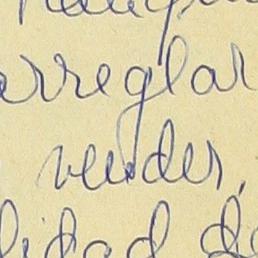 arreglar
vender,
lidad de